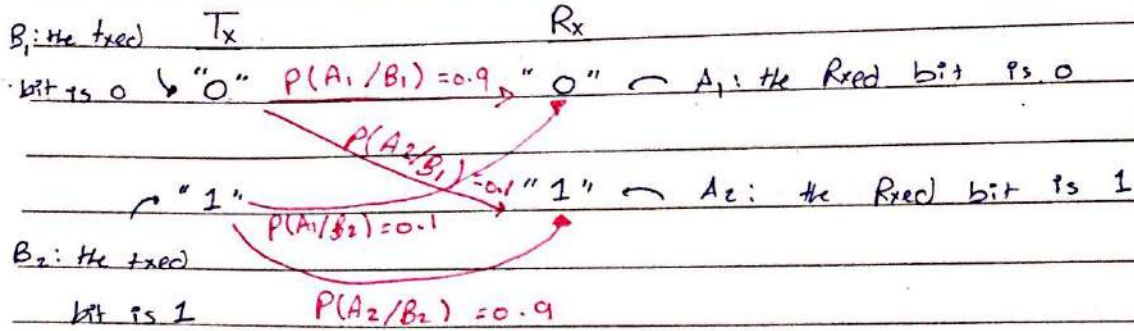 B₁: the txed Tx Rx
bit is 0 "0" P(A₁/B₁) = 0.9 "0" A₁: the Rxed bit is 0
P(A₂/B₁) = 0.1
"1" "1" A₂: the Rxed bit is 1
P(A₁/B₂) = 0.1
B₂: the txed
bit is 1 P(A₂/B₂) = 0.9